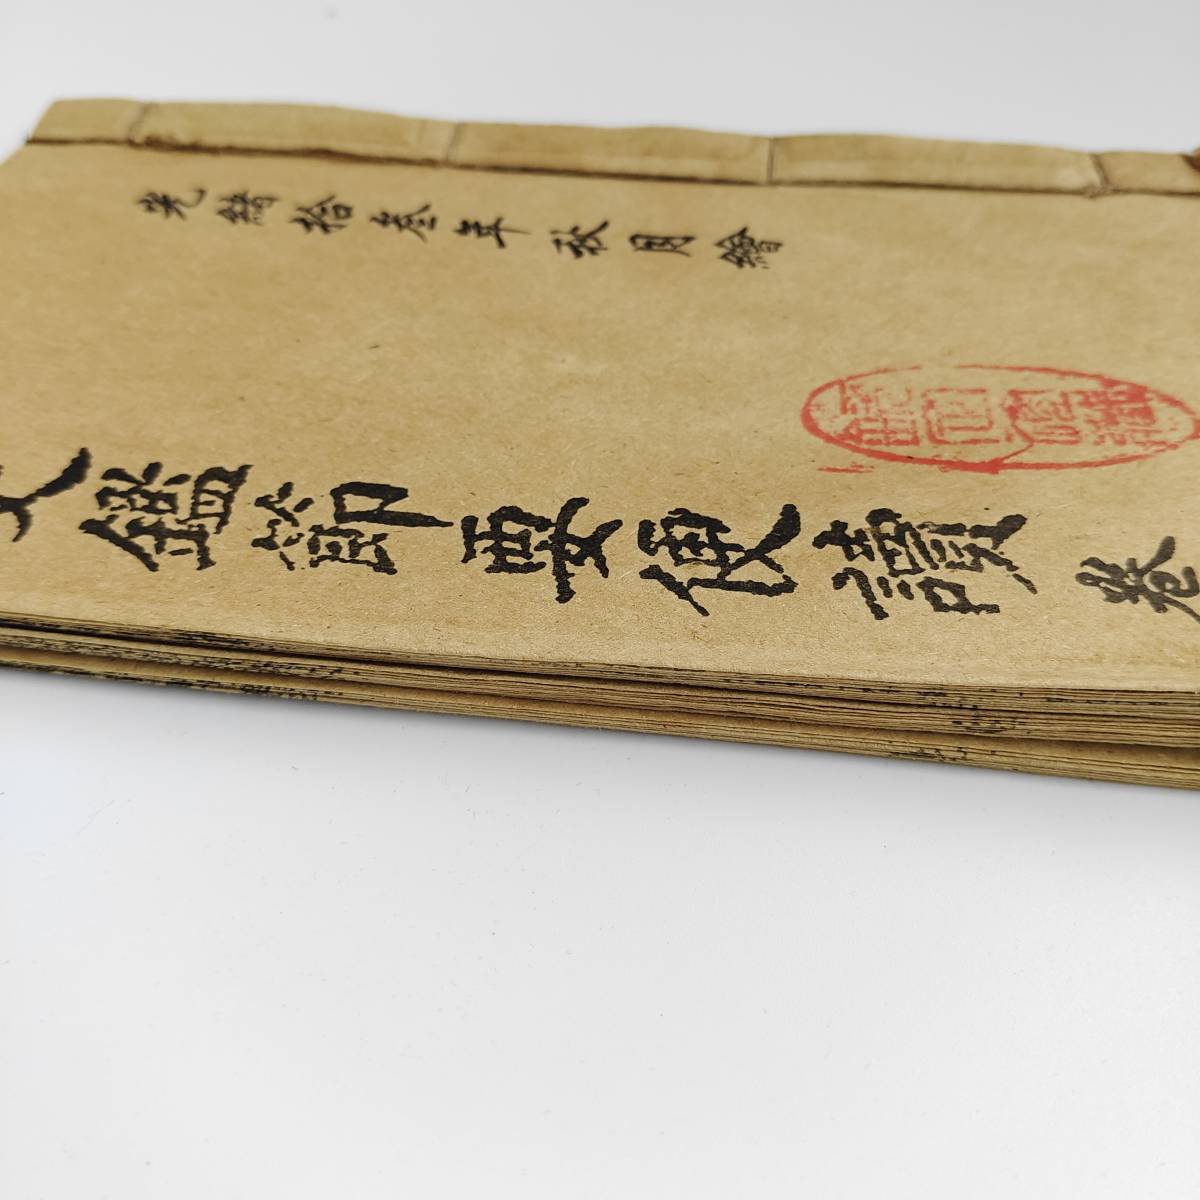 光緒拾叁年秋月繪
史鑑節要便讀 卷